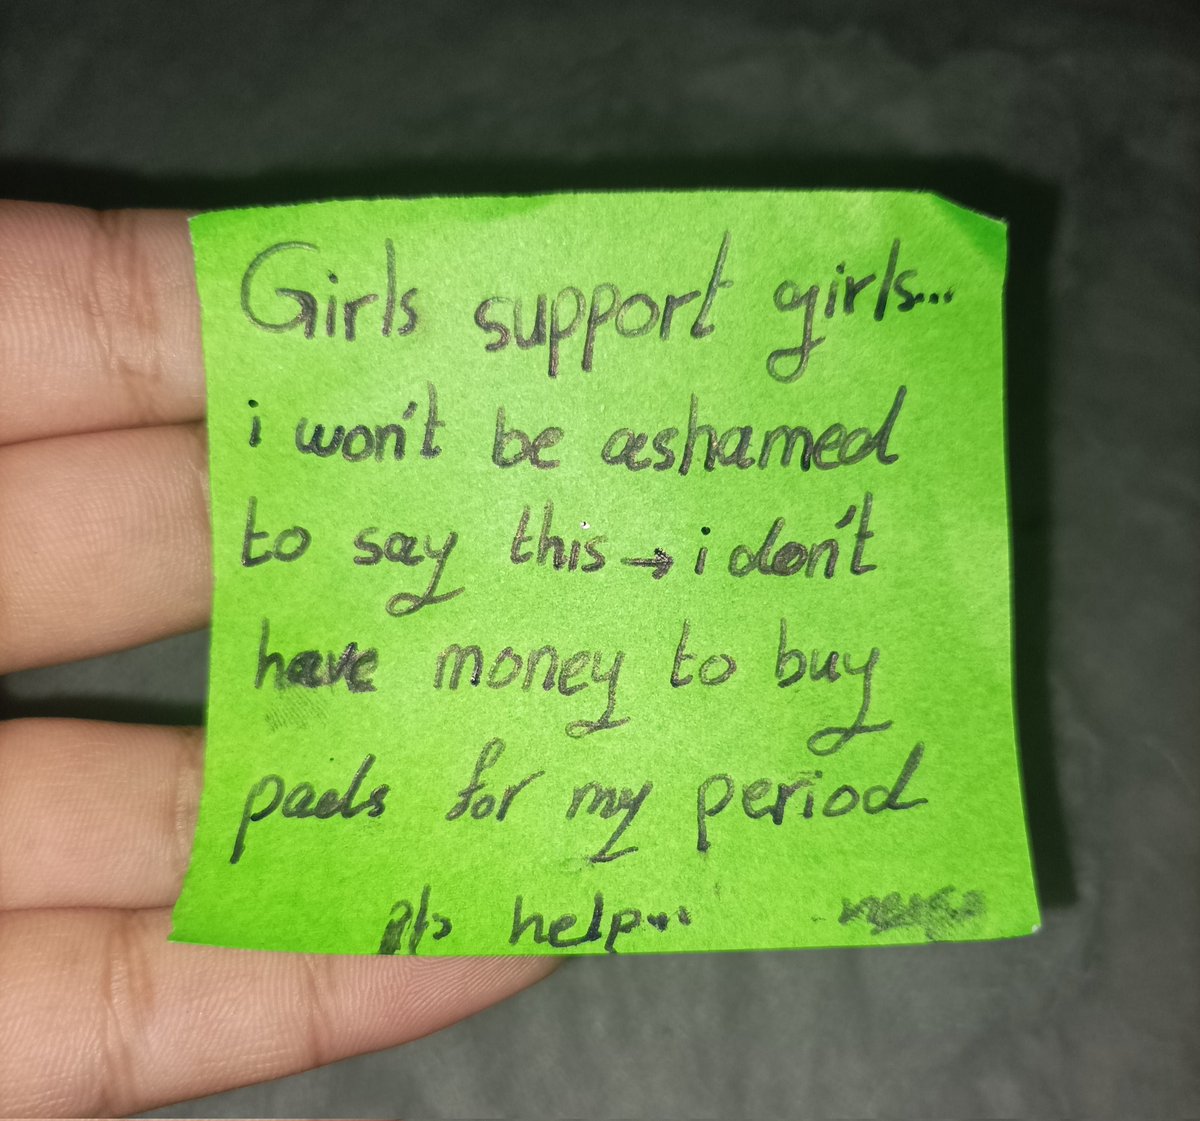 Girls support girls...
i won't be ashamed
to say this → i don't
have money to buy
pads for my period
pls help...